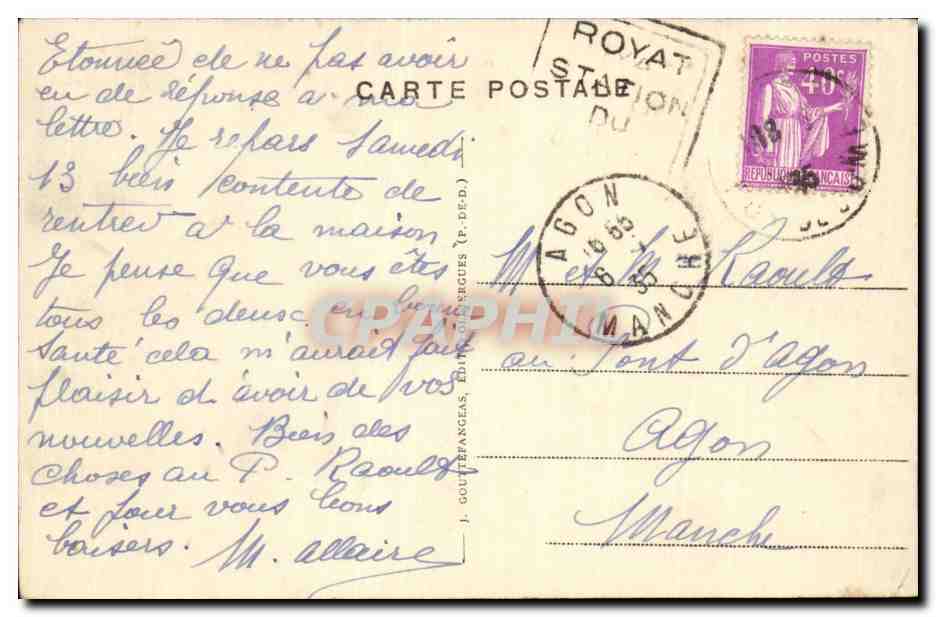 Etonnée de ne pas avoir
eu de réponse a ma
lettre. Je repars Samedi
13 bien contente de
rentrer a la maison
Je pense que vous êtes
tous les deux en bonne
Santé cela m'aurait fait
plaisir d'avoir de vos
nouvelles. Bien des
choses au P. Raoult
et pour vous bons
baisers. M. Allaire
CARTE POSTALE
J. GOUTTEFANGEAS, EDIT., OLLIERGUES (P.-DE-D.)
ROYAT
STATION
DU
POSTES
40c
REPUBLIQUE FRANÇAISE
AGON
6 35
MANCHE
M et M Raoult
au Pont d'Agon
Agon
Manche
CPAPHIL